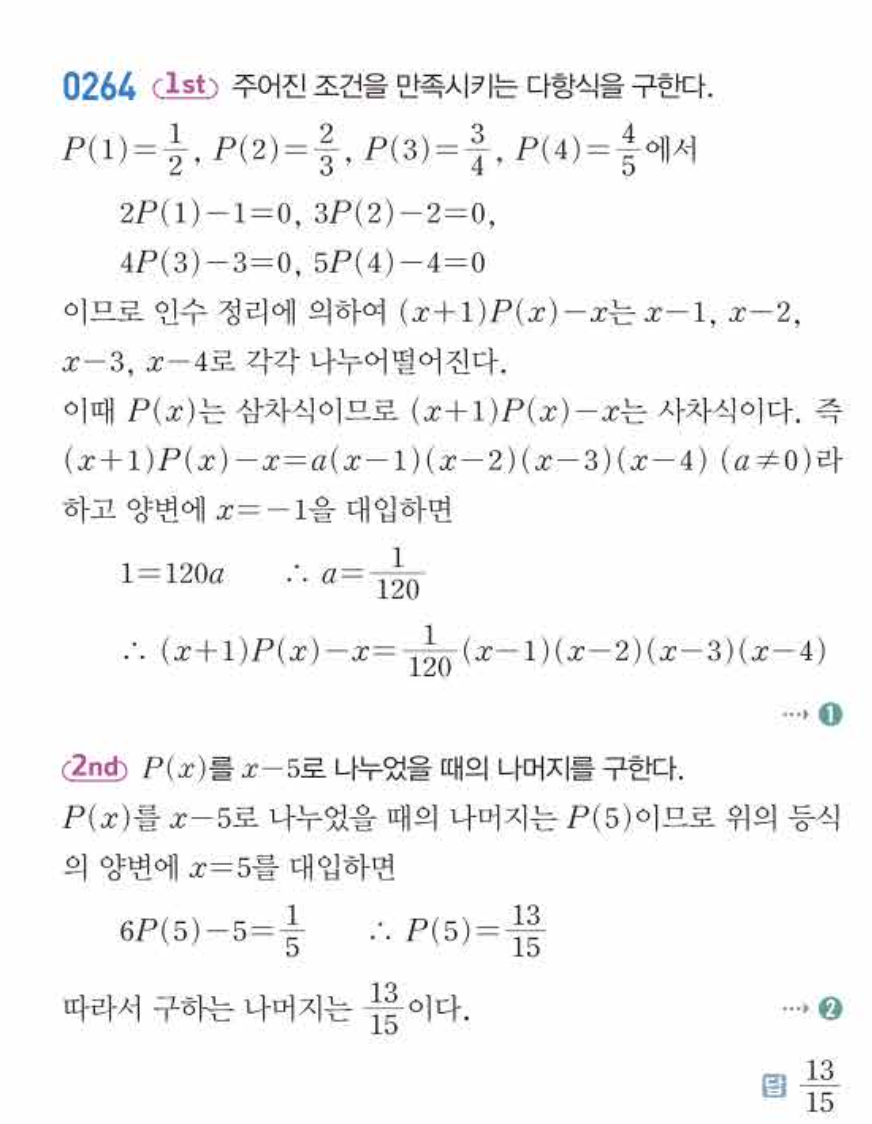 0264 1st 주어진 조건을 만족시키는 다항식을 구한다.
P(1)=1/2, P(2)=2/3, P(3)=3/4, P(4)=4/5에서
2P(1)-1=0, 3P(2)-2=0,
4P(3)-3=0, 5P(4)-4=0
이므로 인수 정리에 의하여 (x+1)P(x)-x는 x-1, x-2,
x-3, x-4로 각각 나누어떨어진다.
이때 P(x)는 삼차식이므로 (x+1)P(x)-x는 사차식이다. 즉
(x+1)P(x)-x=a(x-1)(x-2)(x-3)(x-4) (a≠0)라
하고 양변에 x=-1을 대입하면
1=120a ∴ a=1/120
∴ (x+1)P(x)-x=1/120(x-1)(x-2)(x-3)(x-4)
···→ ❶
2nd P(x)를 x-5로 나누었을 때의 나머지를 구한다.
P(x)를 x-5로 나누었을 때의 나머지는 P(5)이므로 위의 등식
의 양변에 x=5를 대입하면
6P(5)-5=1/5 ∴ P(5)=13/15
따라서 구하는 나머지는 13/15이다. ···→ ❷
답 13/15